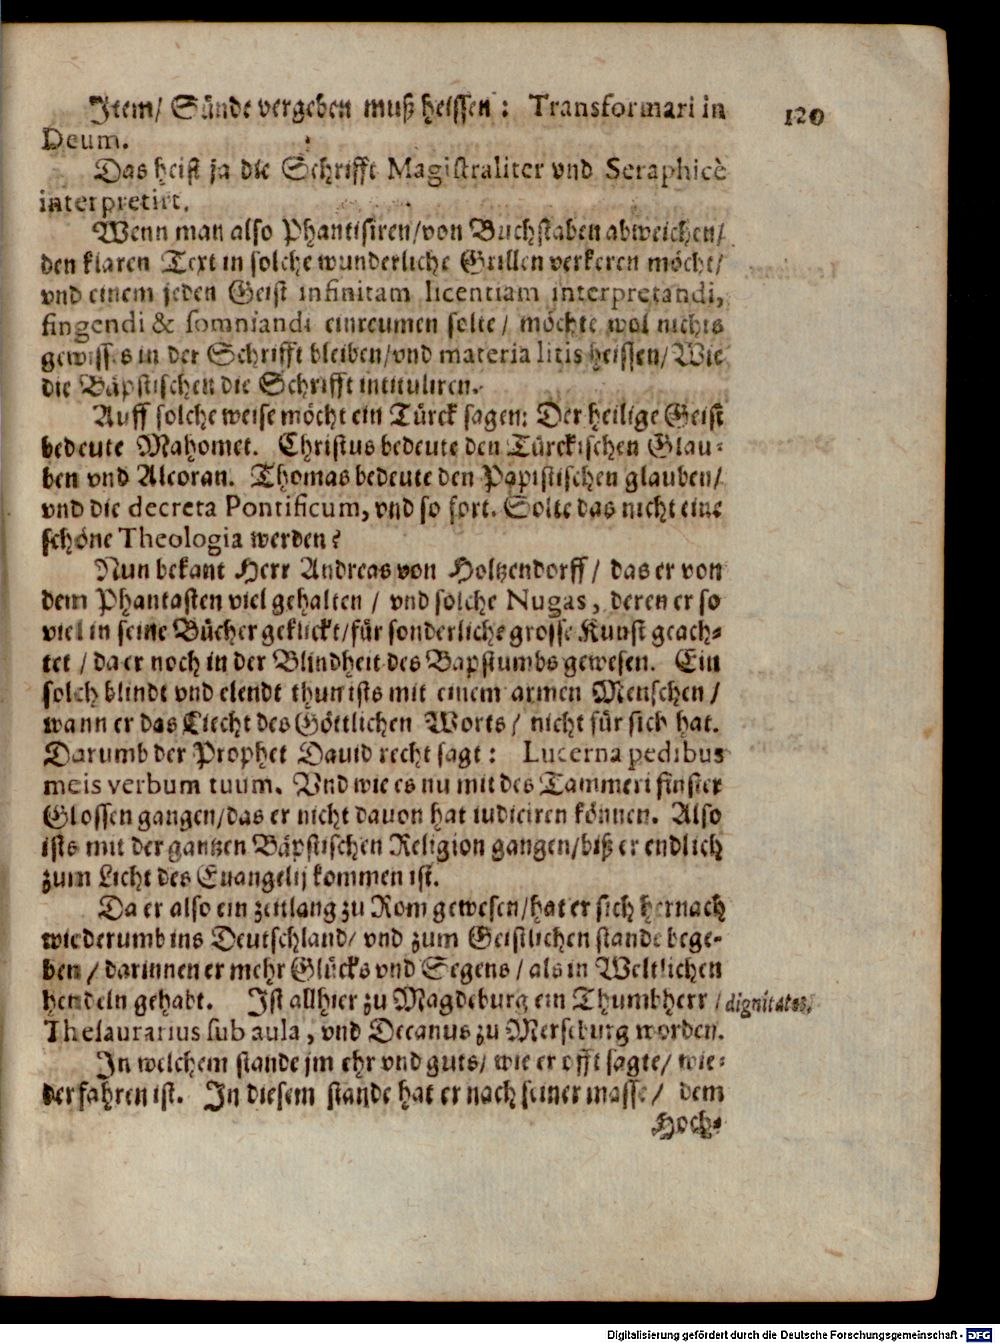 Item/ Sünde vergeben muß heissen: Transformari in
120
Deum.
Das heist ja die Schrifft Magistraliter vnd Seraphicè
interpretirt.
Wenn man also Phantisiren/von Buchstaben abweichen/
den klaren Text in solche wunderliche Grillen verkeren möcht/
vnd einem jeden Geist infinitam licentiam interpretandi,
fingendi & somniandi einreumen solte/ möchte wol nichts
gewisses in der Schrifft bleiben/vnd materia litis heissen/Wie
die Bäpstischen die Schrifft intituliren.
Auff solche weise möcht ein Türck sagen: Der heilige Geist
bedeute Mahomet. Christus bedeute den Türckischen Glau-
ben vnd Alcoran. Thomas bedeute den Papistischen glauben/
vnd die decreta Pontificum, vnd so fort. Solte das nicht eine
schöne Theologia werden?
Nun bekant Herr Andreas von Holtzendorff/ das er von
dem Phantasten viel gehalten / vnd solche Nugas, deren er so
viel in seine Bücher geklickt/für sonderliche grosse Kunst geach-
tet / da er noch in der Blindheit des Bapstumbs gewesen. Ein
solch blindt vnd elendt thun ists mit einem armen Menschen /
wann er das Liecht des Göttlichen Worts/ nicht für sich hat.
Darumb der Prophet Dauid recht sagt: Lucerna pedibus
meis verbum tuum. Vnd wie es nu mit des Tammeri finster
Glossen gangen/das er nicht dauon hat iudiciren können. Also
ists mit der gantzen Bäpstischen Religion gangen/biß er endlich
zum Licht des Euangelij kommen ist.
Da er also ein zeitlang zu Rom gewesen/hat er sich hernach
wiederumb ins Deutschland/ vnd zum Geistlichen stande bege-
ben / darinnen er mehr Glücks vnd Segens / als in Weltlichen
hendeln gehabt. Ist allhier zu Magdeburg ein Thumbherr /
dignitates,
Thesaurarius sub aula, vnd Decanus zu Merseburg worden.
In welchem stande jm ehr vnd guts/ wie er offt sagte/ wie-
derfahren ist. In diesem stande hat er nach seiner masse/ dem
Hoch-
Digitalisierung gefördert durch die Deutsche Forschungsgemeinschaft - DFG